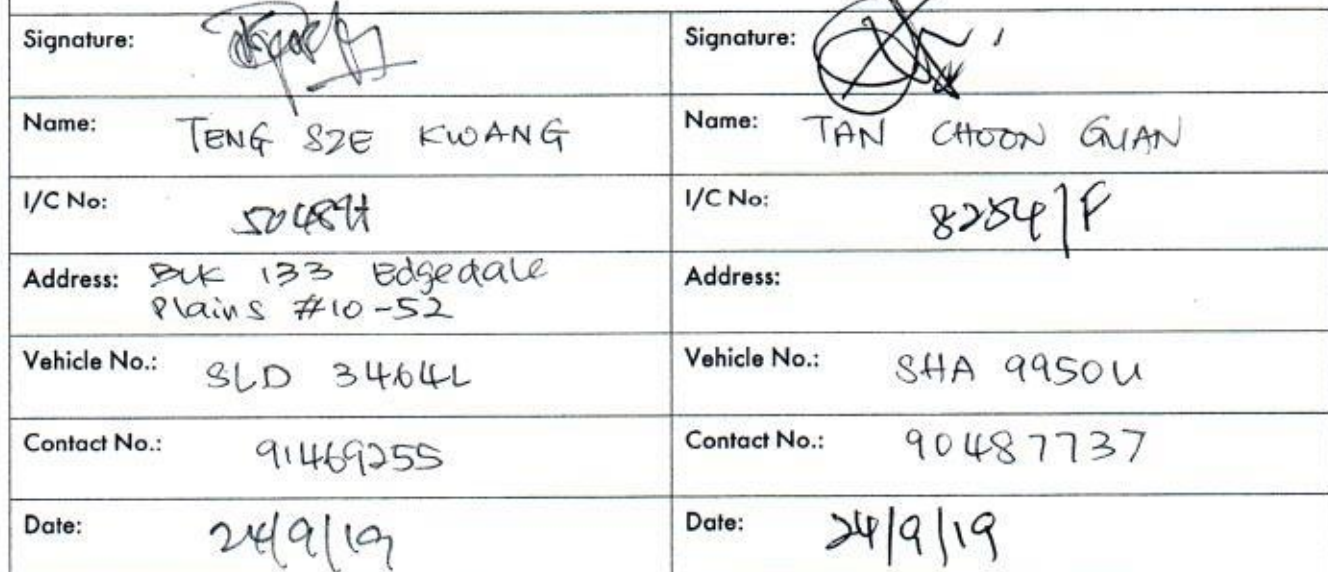 Signature: Signature:
Name: TENG SZE KWANG Name: TAN CHOON GUAN
I/C No: I/C No: 8254 | F
Address: BLK 133 Edgedale Address:
Plains #10-52
Vehicle No.: SLD 3464L Vehicle No.: SHA 9950U
Contact No.: 91469255 Contact No.: 90487737
Date: 24/9/19 Date: 24/9/19